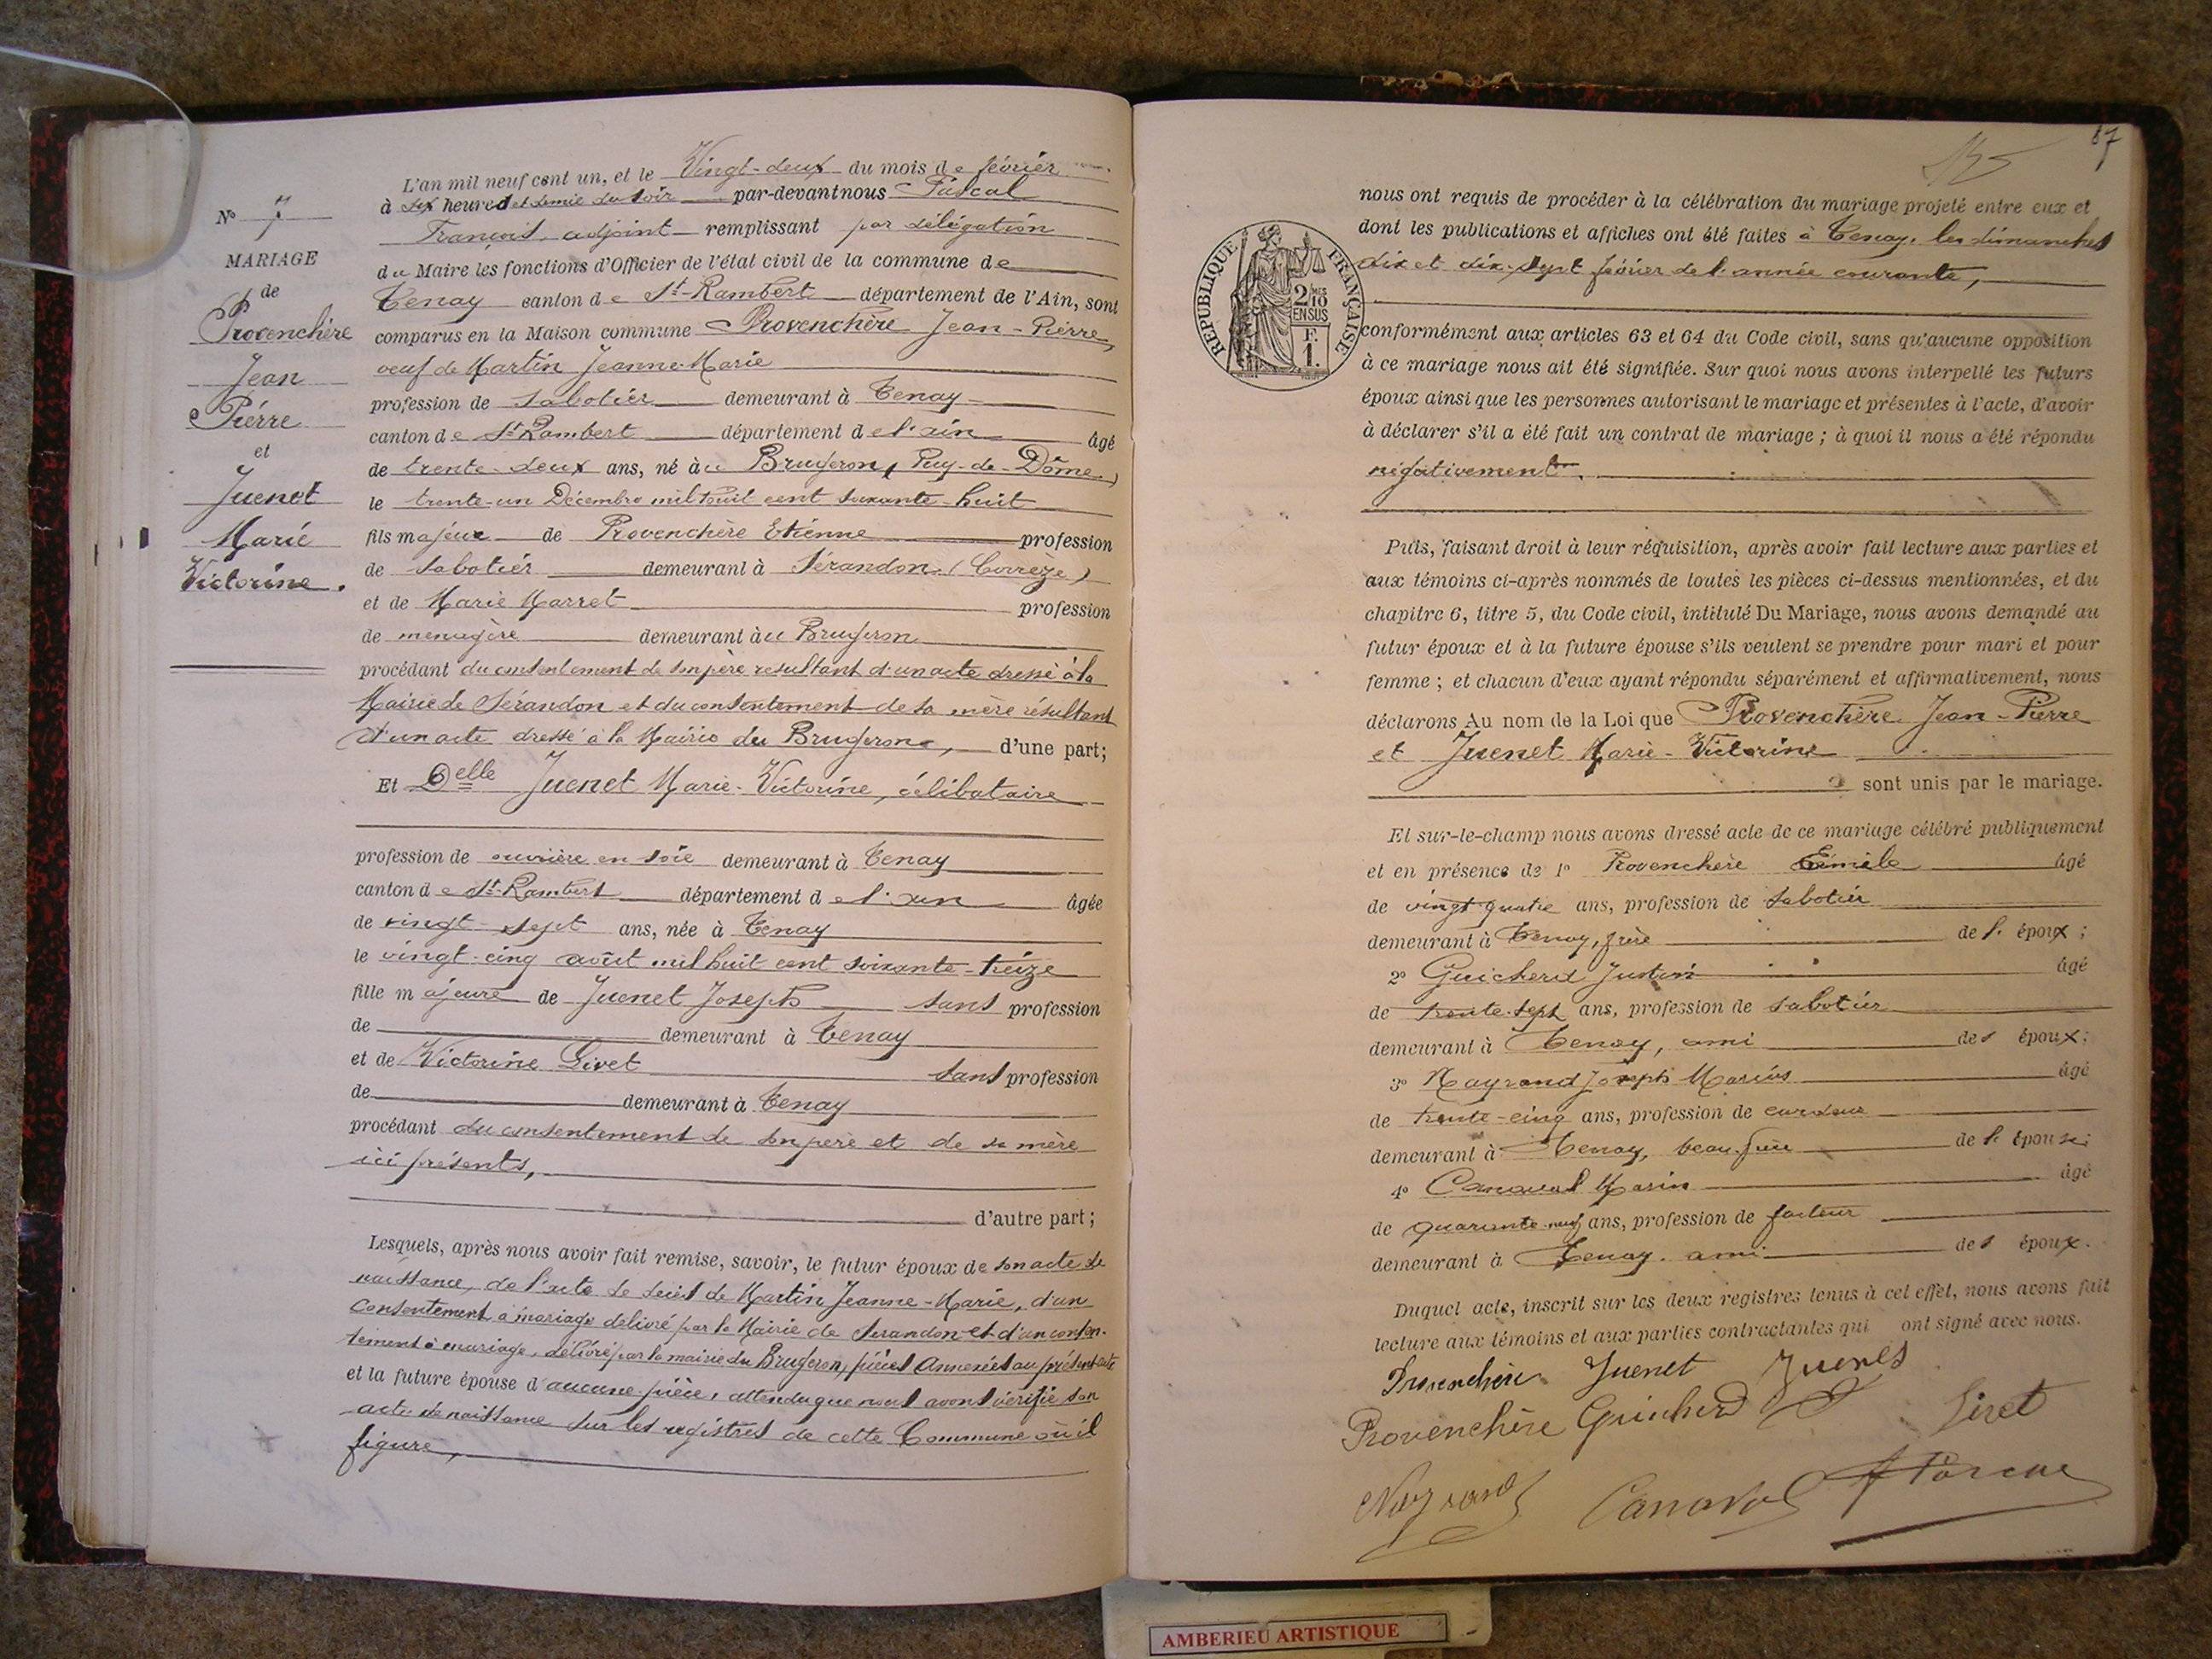 N° 7
MARIAGE
de
Provenchère
Jean
Pierre
et
Juenet
Marie
Victorine.
L'an mil neuf cent un, et le Vingt-deux du mois de février
à six heures et demie du soir par-devant nous Pascal
François, adjoint remplissant par délégation
du Maire les fonctions d'Officier de l'état civil de la commune de
Tenay canton de St-Rambert département de l'Ain, sont
comparus en la Maison commune Provenchère Jean-Pierre,
veuf de Martin Jeanne-Marie
profession de sabotier demeurant à Tenay
canton de St-Rambert département de l'ain âgé
de trente-deux ans, né au Brugeron, Puy-de-Dôme,
le trente-un Décembre mil huit cent soixante-huit
fils majeur de Provenchère Etienne profession
de sabotier demeurant à Sérandon (Corrèze)
et de Marie Marret profession
de menagère demeurant au Brugeron
procédant du consentement de son père resultant d'un acte dressé à la
Mairie de Sérandon et du consentement de sa mère résultant
d'un acte dressé à la Mairie du Brugeron, d'une part;
Et Delle Juenet Marie-Victorine, célibataire
profession de ouvrière en soie demeurant à Tenay
canton de St-Rambert département de l'ain âgée
de vingt-sept ans, née à Tenay
le vingt-cinq août mil huit cent soixante-treize
fille majeure de Juenet Joseph sans profession
de demeurant à Tenay
et de Victorine Livet sans profession
de demeurant à Tenay
procédant du consentement de son père et de sa mère
ici présents,
d'autre part;
Lesquels, après nous avoir fait remise, savoir, le futur époux de son acte de
naissance, de l'acte de décès de Martin Jeanne-Marie, d'un
consentement à mariage délivré par la Mairie de Serandon et d'un consen-
tement à mariage, délivré par la mairie du Brugeron, pièces annexées au présent acte
et la future épouse d'aucune pièce, attendu que nous avons vérifié son
acte de naissance sur les registres de cette Commune où il
figure,
87
nous ont requis de procéder à la célébration du mariage projeté entre eux et
dont les publications et affiches ont été faites à Tenay, les dimanches
dix et dix-sept février de l'année courante,
RÉPUBLIQUE FRANÇAISE
2/10 MES
EN SUS
F.
1.
conformément aux articles 63 et 64 du Code civil, sans qu'aucune opposition
à ce mariage nous ait été signifiée. Sur quoi nous avons interpellé les futurs
époux ainsi que les personnes autorisant le mariage et présentes à l'acte, d'avoir
à déclarer s'il a été fait un contrat de mariage ; à quoi il nous a été répondu
négativement.
Puis, faisant droit à leur réquisition, après avoir fait lecture aux parties et
aux témoins ci-après nommés de toutes les pièces ci-dessus mentionnées, et du
chapitre 6, titre 5, du Code civil, intitulé Du Mariage, nous avons demandé au
futur époux et à la future épouse s'ils veulent se prendre pour mari et pour
femme ; et chacun d'eux ayant répondu séparément et affirmativement, nous
déclarons Au nom de la Loi que Provenchère Jean-Pierre
et Juenet Marie-Victorine
sont unis par le mariage.
Et sur-le-champ nous avons dressé acte de ce mariage célébré publiquement
et en présence de 1° Provenchère Emile âgé
de vingt quatre ans, profession de sabotier
demeurant à Tenay, frère de l' époux ;
2° Guicherd Justin âgé
de trente-sept ans, profession de sabotier
demeurant à Tenay, ami des époux ;
3° Mayrand Joseph Marius âgé
de trente-cinq ans, profession de cardeur
demeurant à Tenay, beau-frère de l' épouse;
4° Canaval Marin âgé
de quarante-neuf ans, profession de facteur
demeurant à Tenay. ami des époux.
Duquel acte, inscrit sur les deux registres tenus à cet effet, nous avons fait
lecture aux témoins et aux parties contractantes qui ont signé avec nous.
Provenchère Juenet Juenet
Provenchère Guicherd Livet
Canaval
AMBERIEU ARTISTIQUE